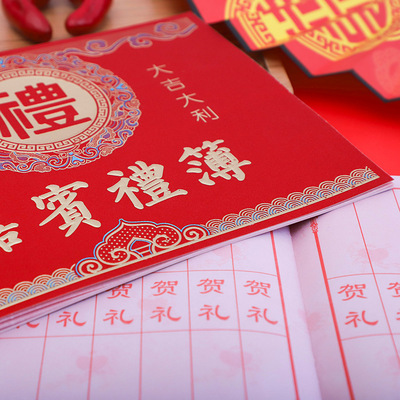 禮
大吉大利
賓禮薄
贺礼 贺礼 贺礼 贺礼 贺礼
贺礼 贺礼